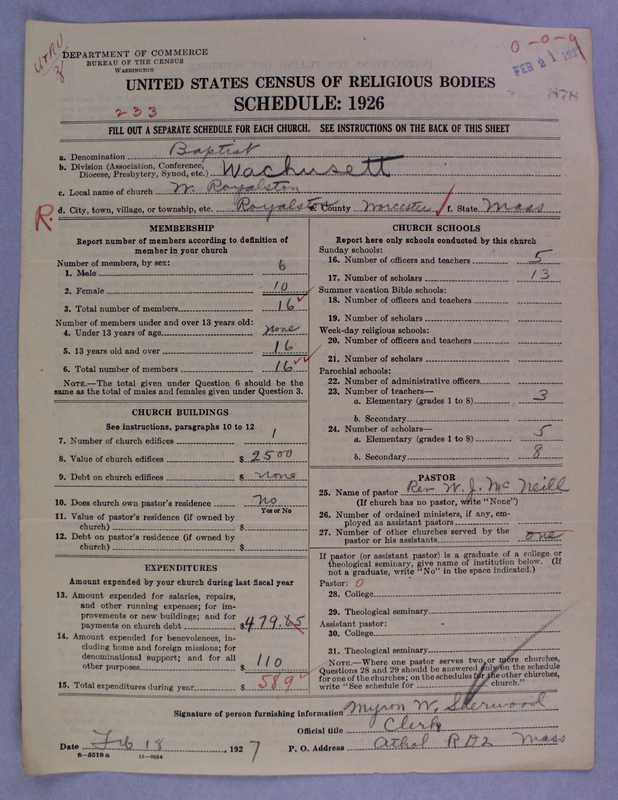 DEPARTMENT OF COMMERCE
BUREAU OF THE CENSUS
WASHINGTON
0-0-9
FEB 21 192
UNITED STATES CENSUS OF RELIGIOUS BODIES
SCHEDULE: 1926
233
FILL OUT A SEPARATE SCHEDULE FOR EACH CHURCH. SEE INSTRUCTIONS ON THE BACK OF THIS SHEET
a. Denomination Baptist
b. Division (Association, Conference, Diocese, Presbytery, Synod, etc.) Wachusett
c. Local name of church W. Royalston
R. d. City, town, village, or township, etc. Royalston e. County Worcester f. State Mass
MEMBERSHIP
Report number of members according to definition of
member in your church
Number of members, by sex:
1. Male 6
2. Female 10
3. Total number of members 16
Number of members under and over 13 years old:
4. Under 13 years of age none
5. 13 years old and over 16
6. Total number of members 16
NOTE.—The total given under Question 6 should be the
same as the total of males and females given under Question 3.
CHURCH BUILDINGS
See instructions, paragraphs 10 to 12
7. Number of church edifices 1
8. Value of church edifices $ 2500
9. Debt on church edifices $ none
10. Does church own pastor's residence no
Yes or No
11. Value of pastor's residence (if owned by
church) $
12. Debt on pastor's residence (if owned by
church) $
EXPENDITURES
Amount expended by your church during last fiscal year
13. Amount expended for salaries, repairs,
and other running expenses; for im-
provements or new buildings; and for
payments on church debt $479.65
14. Amount expended for benevolences, in-
cluding home and foreign missions; for
denominational support; and for all
other purposes $ 110
15. Total expenditures during year $ 589
CHURCH SCHOOLS
Report here only schools conducted by this church
Sunday schools:
16. Number of officers and teachers 5
17. Number of scholars 13
Summer vacation Bible schools:
18. Number of officers and teachers
19. Number of scholars
Week-day religious schools:
20. Number of officers and teachers
21. Number of scholars
Parochial schools:
22. Number of administrative officers
23. Number of teachers—
a. Elementary (grades 1 to 8) 3
b. Secondary
24. Number of scholars—
a. Elementary (grades 1 to 8) 5
b. Secondary 8
PASTOR
25. Name of pastor Rev W. J. McNeill
(If church has no pastor, write "None")
26. Number of ordained ministers, if any, em-
ployed as assistant pastors
27. Number of other churches served by the
pastor or his assistants one
If pastor (or assistant pastor) is a graduate of a college or
theological seminary, give name of institution below. (If
not a graduate, write "No" in the space indicated.)
Pastor: 0
28. College
29. Theological seminary
Assistant pastor:
30. College
31. Theological seminary
NOTE.—Where one pastor serves two or more churches,
Questions 28 and 29 should be answered only on the schedule
for one of the churches; on the schedules for the other churches,
write "See schedule for church."
Signature of person furnishing information Myron W. Sherwood
Official title Clerk
Date Feb 18, 1927 P. O. Address Athol R D 2 Mass
8—5518 a 11—9564